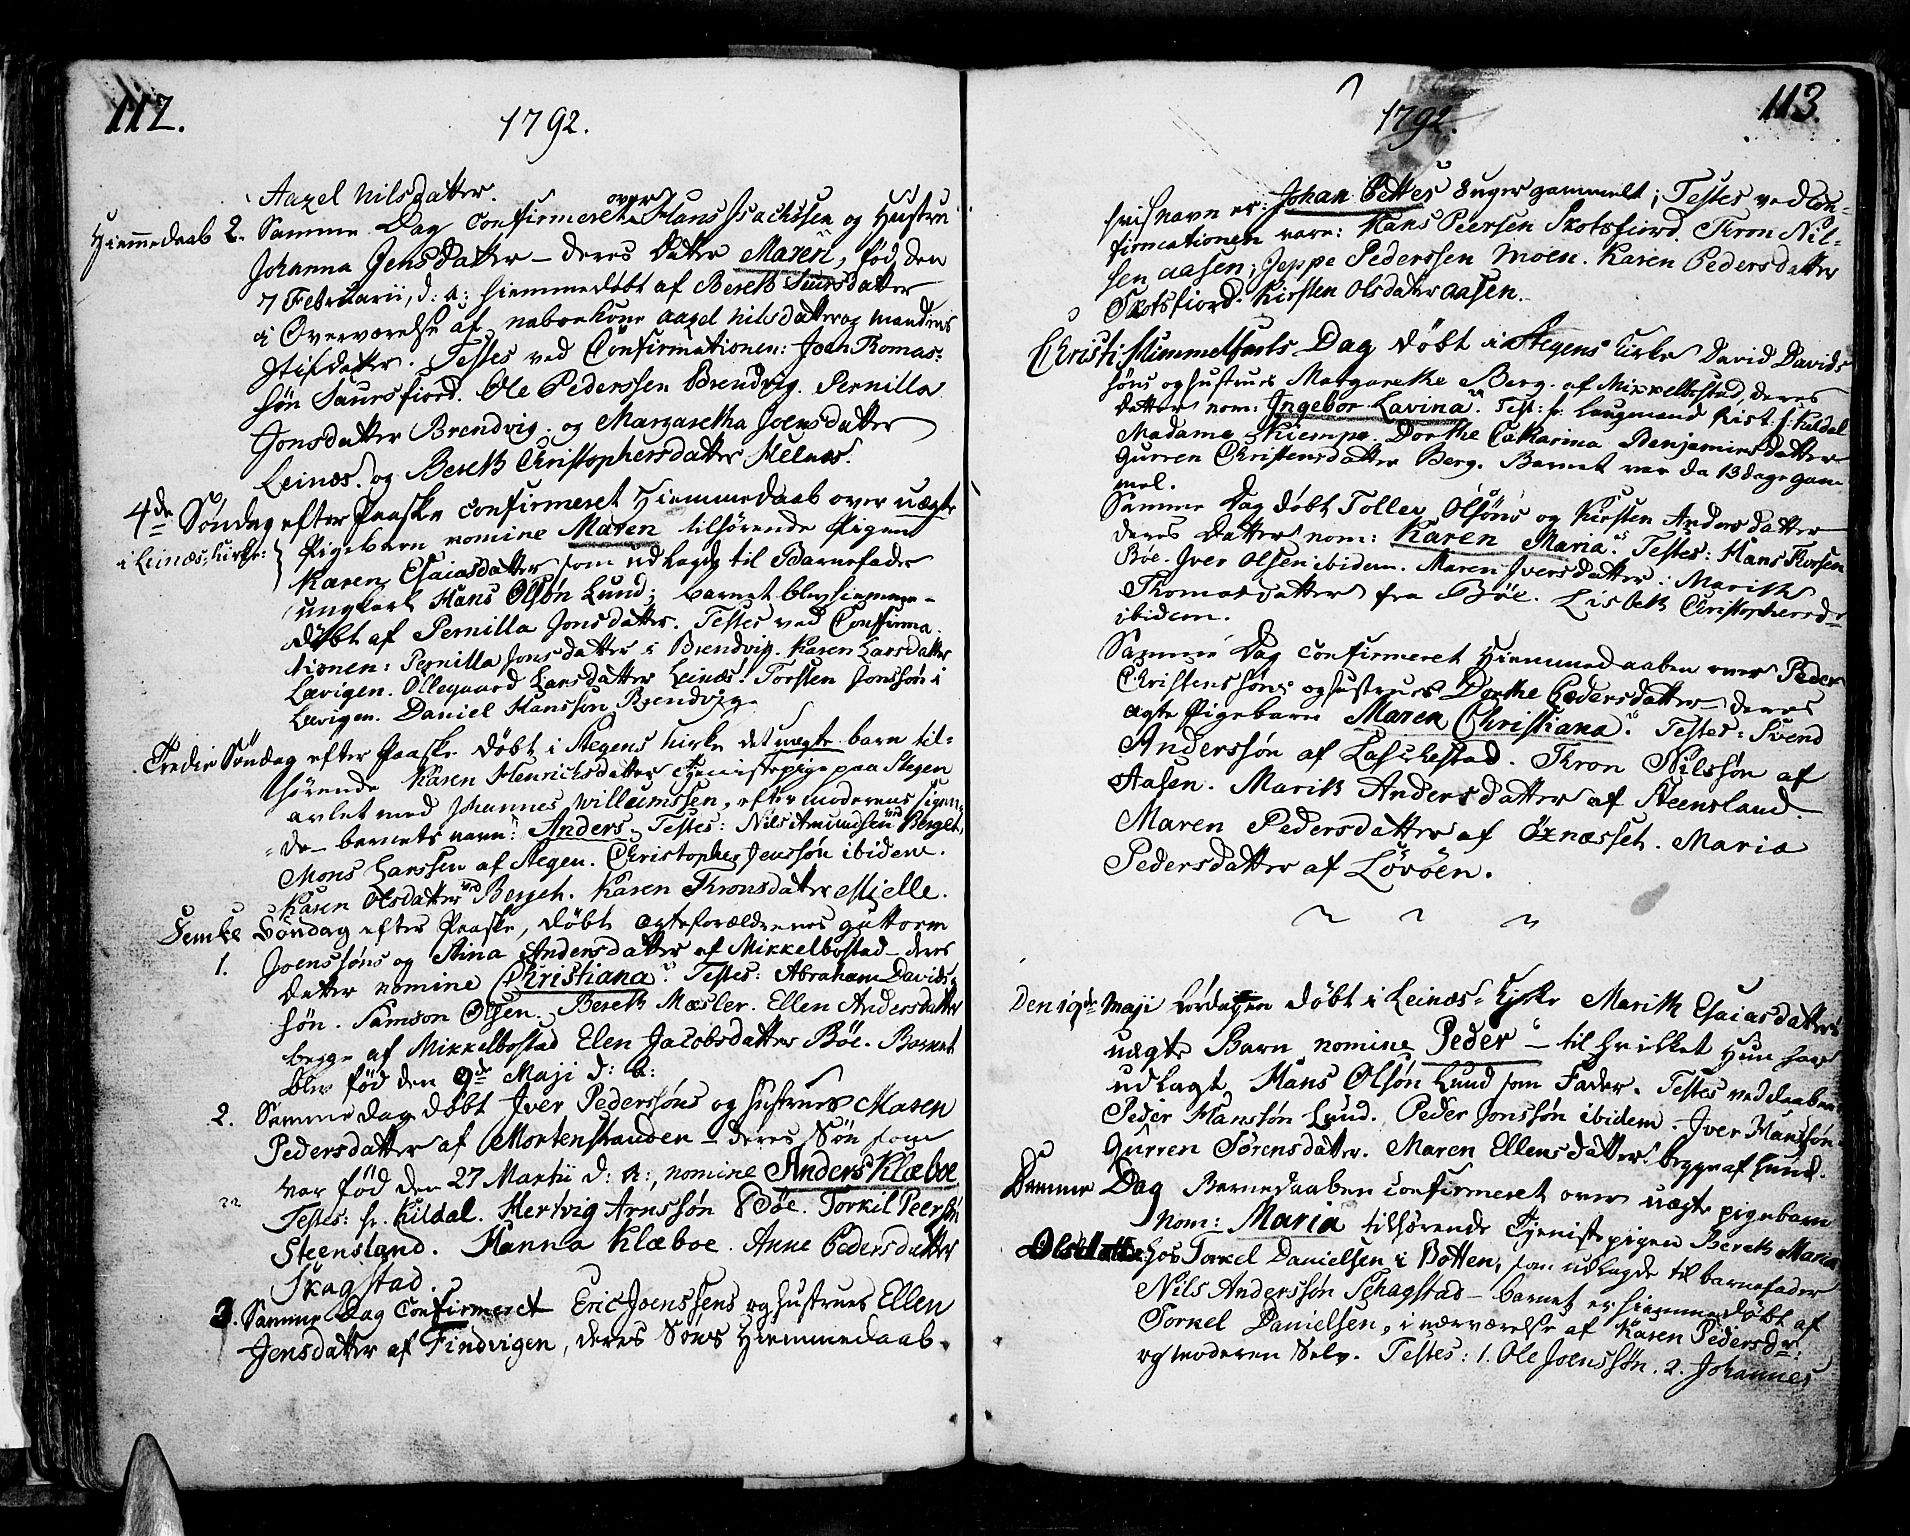 112.
1792.
Aazel Nilsdatter.
Hiemmedaab 2. Samme Dag Confirmeret over Hans Isachssen og Hustru
Johanna Jensdatter – deres Datter Maren, fød den
7 Februarii, d: a: hiemmedøbt af Bereth Siursdatter
i Overværelse af naboekone Aazel Nilsdatter og mandens
Stifdatter. Testes ved Confirmationen: Joen Thomas-
søn Saursfiord. Ole Pederssen Brendvig. Pernilla
Jonsdatter Brendvig. og Margaretha Joensdatter
Leinæs. og Bereth Christophersdatter Helnæs.
4de Søndag efter Paaske Confirmeret Hiemmedaab over uægte
i Leinæs-Kirke: Pigebarn nomine Maren tilhørende Pigen
Karen Esaiasdatter som udlagde til Barnefader
ungkarl Hans Olsøn Lund; barnet blev hiemme-
døbt af Pernilla Jonsdatter. Testes ved Confirma-
tionen: Pernilla Jonsdatter i Brendvig. Karen Larsdatter
Lævigen. Ollegaard Larsdatter Leinæs. Torsten Jonssøn i
Lævigen. Daniel Hanssøn Brendvig.
Tredie Søndag efter Paaske døbt i Stegens Kirke det uægte barn til-
hørende Karen Henrichsdatter tienistepige paa Stegen
avlet med Johannes Willumssen, efter moderens sigen-
de – barnets navn: Anders. Testes: Nils Amundsen ved Berget,
Mons Larssen af Stegen. Christopher Jenssøn ibidem.
Karen Olsdatter ved Berget. Karen Thronsdatter Mielle.
Femte Søndag efter Paaske, døbt ægteforældrenes Guttorm
1. Joenssøns og Stina Andersdatter af Mikkelbostad – deres
datter nomine Christiana. Testes: Abraham Davids-
søn. Samson Olsen. Bereth Mæsler. Ellen Andersdatter
begge af Mikkelbostad Elen Jacobsdatter Bøe. Barnet
blev fød den 9de Maji d: a:
2. Samme dag døbt Iver Pederssøns og hustrues Maren
Pedersdatter af Mortenstranden – deres Søn som
var fød den 27 Martii d: a:, nomine Anders Klæboe
Testes: hr. Kildal. Hertvig Arnssøn Bøe. Torkil Peersøn
Steensland. Hanna Klæboe. Anne Pedersdatter
Skagstad.
3. Samme Dag Confirmeret Eric Joenssens og hustrues Ellen
Jensdatter af Findvigen, deres Søns Hiemmedaab.
113.
1792.
hvis navn er: Johan Petter 8 uger gammelt; Testes ved Con-
firmationen vare: Hans Peersen Skotsfiord. Thron Nil-
sen Aasen; Jeppe Pederssen Moen. Karen Pedersdatter
Skotsfiord. Kirsten Olsdatter Aasen.
Christi Himmelfarts Dag døbt i Stegens Kirke David Davids-
søns og hustrues Margarethe Berg. af Mikkelbostad, deres
datter nom: Ingebor Lavina. Test: hr. Laugmand Rist. f. Kildal
Madame Kiempe. Dorthe Catharina Benjaminsdatter
Gurren Christensdatter Berg. Barnet var da 13 dage gam-
mel.
Samme Dag døbt Toller Olsøns og Kirsten Andersdatter
deres Datter nom: Karen Maria. Testes: Hans Korsen
Bøe. Iver Olsen ibidem. Maren Iversdatter. Marith
Thomasdatter fra Bøe. Lisbeth Christophersdr
ibidem.
Samme Dag Confirmeret Hiemmedaaben over Peder
Christenssøns og hustrues Dorthe Pedersdatter deres
ægte Pigebarn Maren Christiana. Testes: Svend
Anderssøn af Laschestad. Thron Nilssøn af
Aasen. Marith Andersdatter af Steensland.
Maren Pedersdatter af Öxnæsset. Maria
Pedersdatter af Lövöen.
Den 19de Maji Lørdagen døbt i Leinæs-Kirke Marith Esaiasdatters
uægte Barn nomine Peder – til hvilket hun har
udlagt Hans Olsøn Lund som Fader. Testes ved daaben
Peder Hanssøn Lund. Peder Jonssøn ibidem. Iver Hanssøn
Gurren Sørensdatter. Maren Ellensdatter begge af Lund.
Samme Dag Barnedaaben confirmeret over uægte pigebarn
nom: Maria tilhørende Tienistepigen Bereth Maria
Olsdatter hos Torkel Danielsen i Botten, som udlagde til barnefader
Nils Anderssøn Schagstad – barnet er hiemmedøbt af
Torkel Danielsen, i nærværelse af Karen Pedersdr.
og moderen selv. Testes: 1. Ole Joenssøn. 2. Johannes